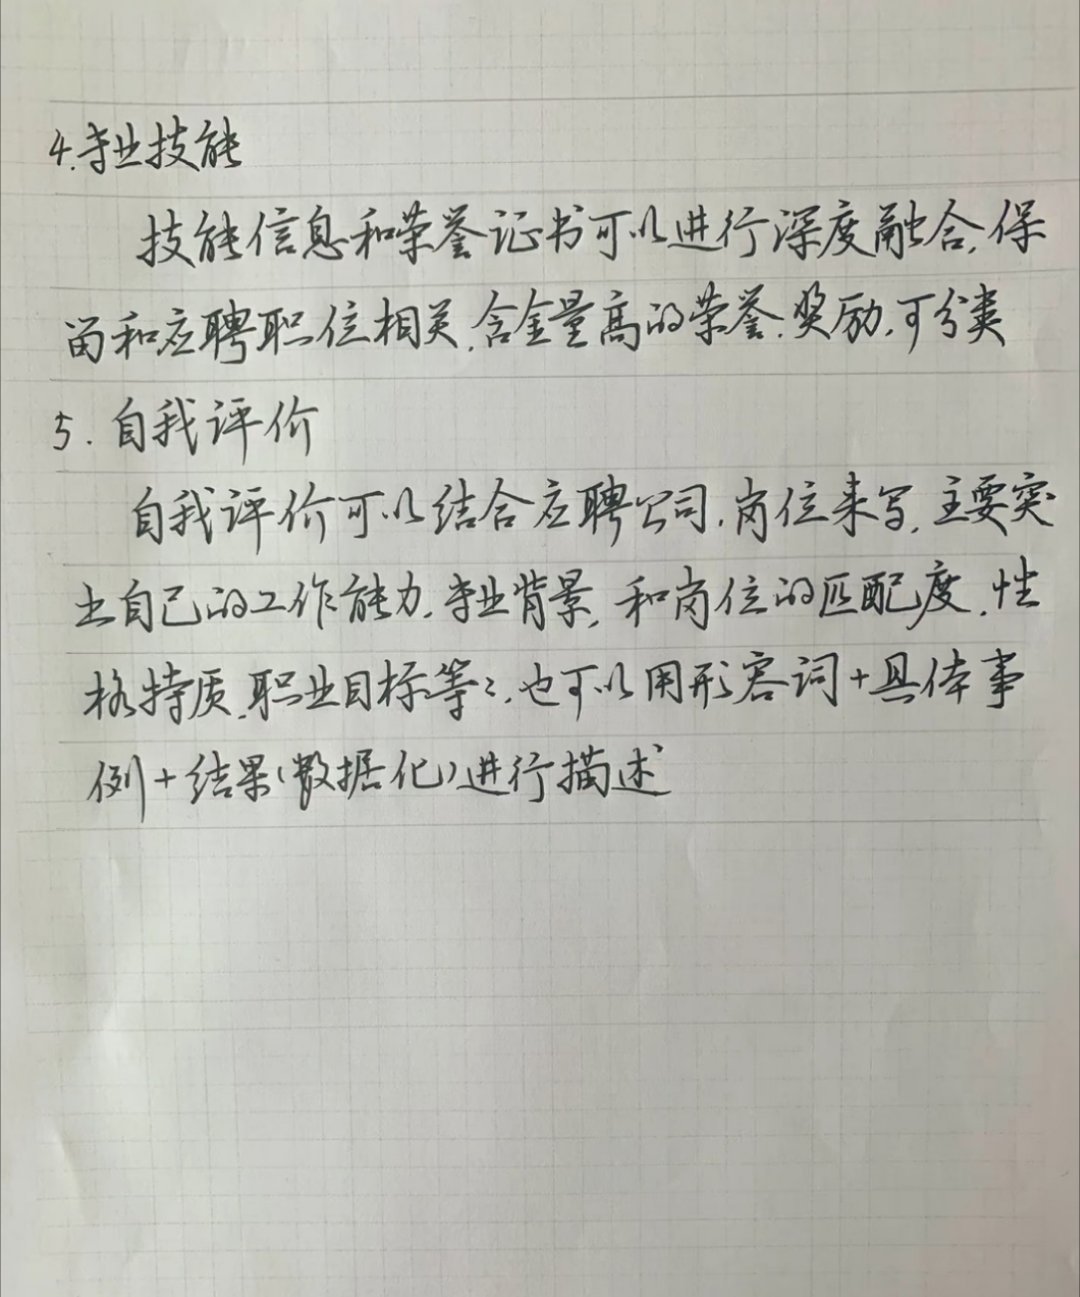 4.专业技能
技能信息和荣誉证书可以进行深度融合,保
留和应聘职位相关,含金量高的荣誉.奖励,可分类
5.自我评价
自我评价可以结合应聘公司,岗位来写,主要突
出自己的工作能力,专业背景,和岗位的匹配度,性
格特质,职业目标等等,也可以用形容词+具体事
例+结果(数据化)进行描述